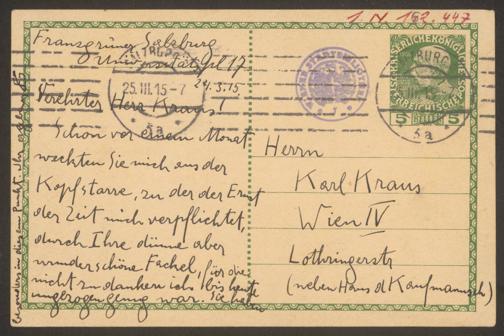 1. N 162.447
Franz Grüner Salzburg
Universitätspl 17
24.3.15
Verehrter Herr Kraus!
Schon vor einem Monat
weckten Sie mich aus der
Kopfstarre, zu der der Ernst
der Zeit mich verpflichtet,
durch Ihre dünne aber
wunderschöne Fackel, für die
nicht zu danken ich bis heute
ungezogen genug war. Sie haben
besonders in diesem Punkt
25.III.15-7
5a
5 HELLER 5
SALZBURG
5a
Herrn
Karl Kraus
Wien IV
Lothringerstr
(neben Haus d Kaufmannsch)